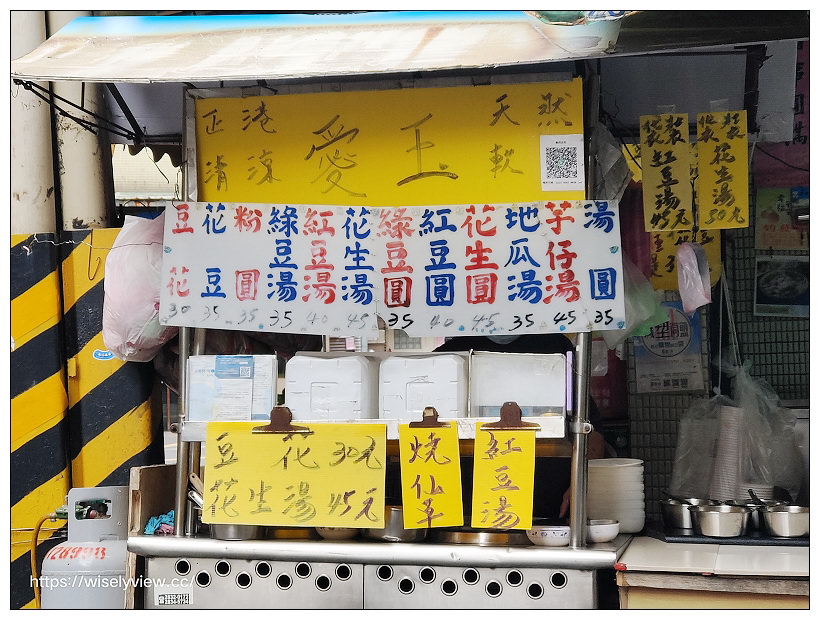 正港 愛玉 天然
清涼 軟
豆花 30
花豆 35
粉圓 35
綠豆湯 35
紅豆湯 40
花生湯 45
綠豆圓 35
紅豆圓 40
花生圓 45
地瓜湯 35
芋仔湯 45
湯圓 35
袋裝 紅豆湯 45元
袋裝 花生湯 50元
豆花 30元
花生湯 45元
燒仙草
紅豆湯
https://wiselyview.cc/